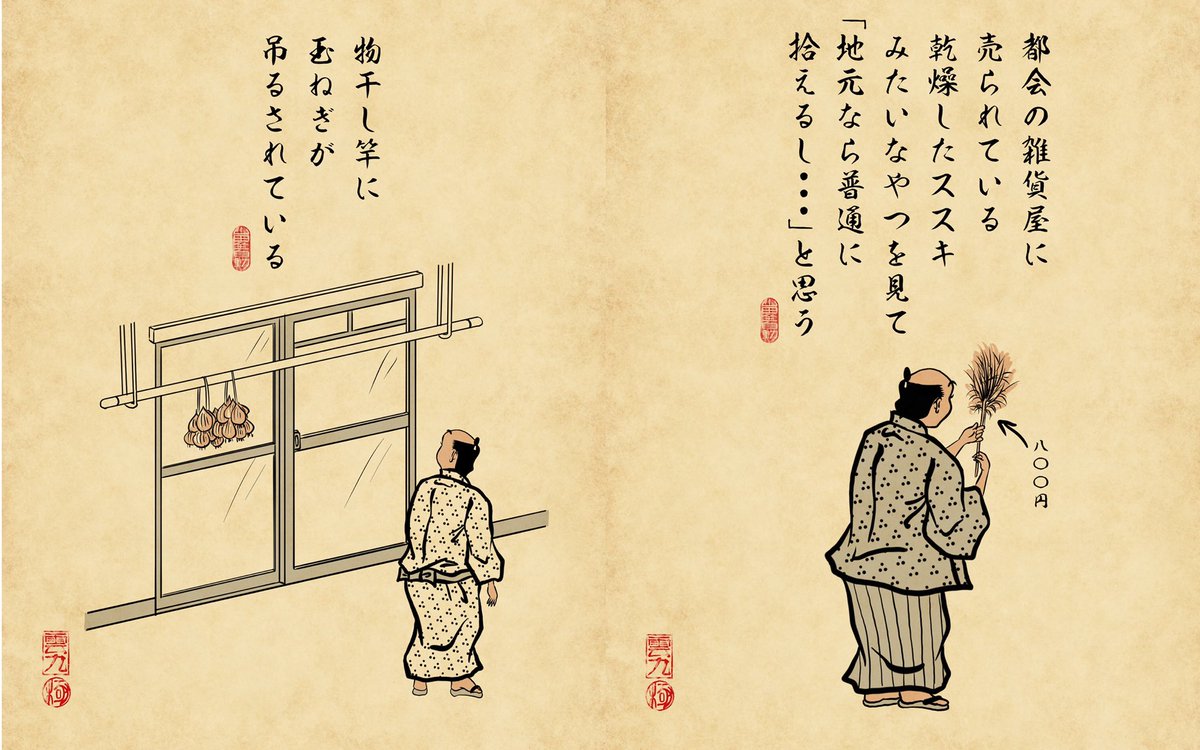 都会の雑貨屋に
売られている
乾燥したススキ
みたいなやつを見て
「地元なら普通に
拾えるし・・・」と思う
八〇〇円
物干し竿に
玉ねぎが
吊るされている